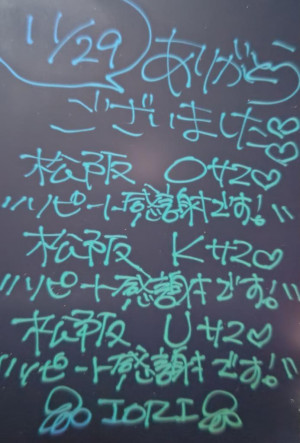 11/29
ありがとう
ございました♡♡
松阪 Oサ20♡
"リピート感謝です!"
松阪 Kサ20♡
"リピート感謝です!"
松阪 Uサ20♡
"リピート感謝です!"
IORI